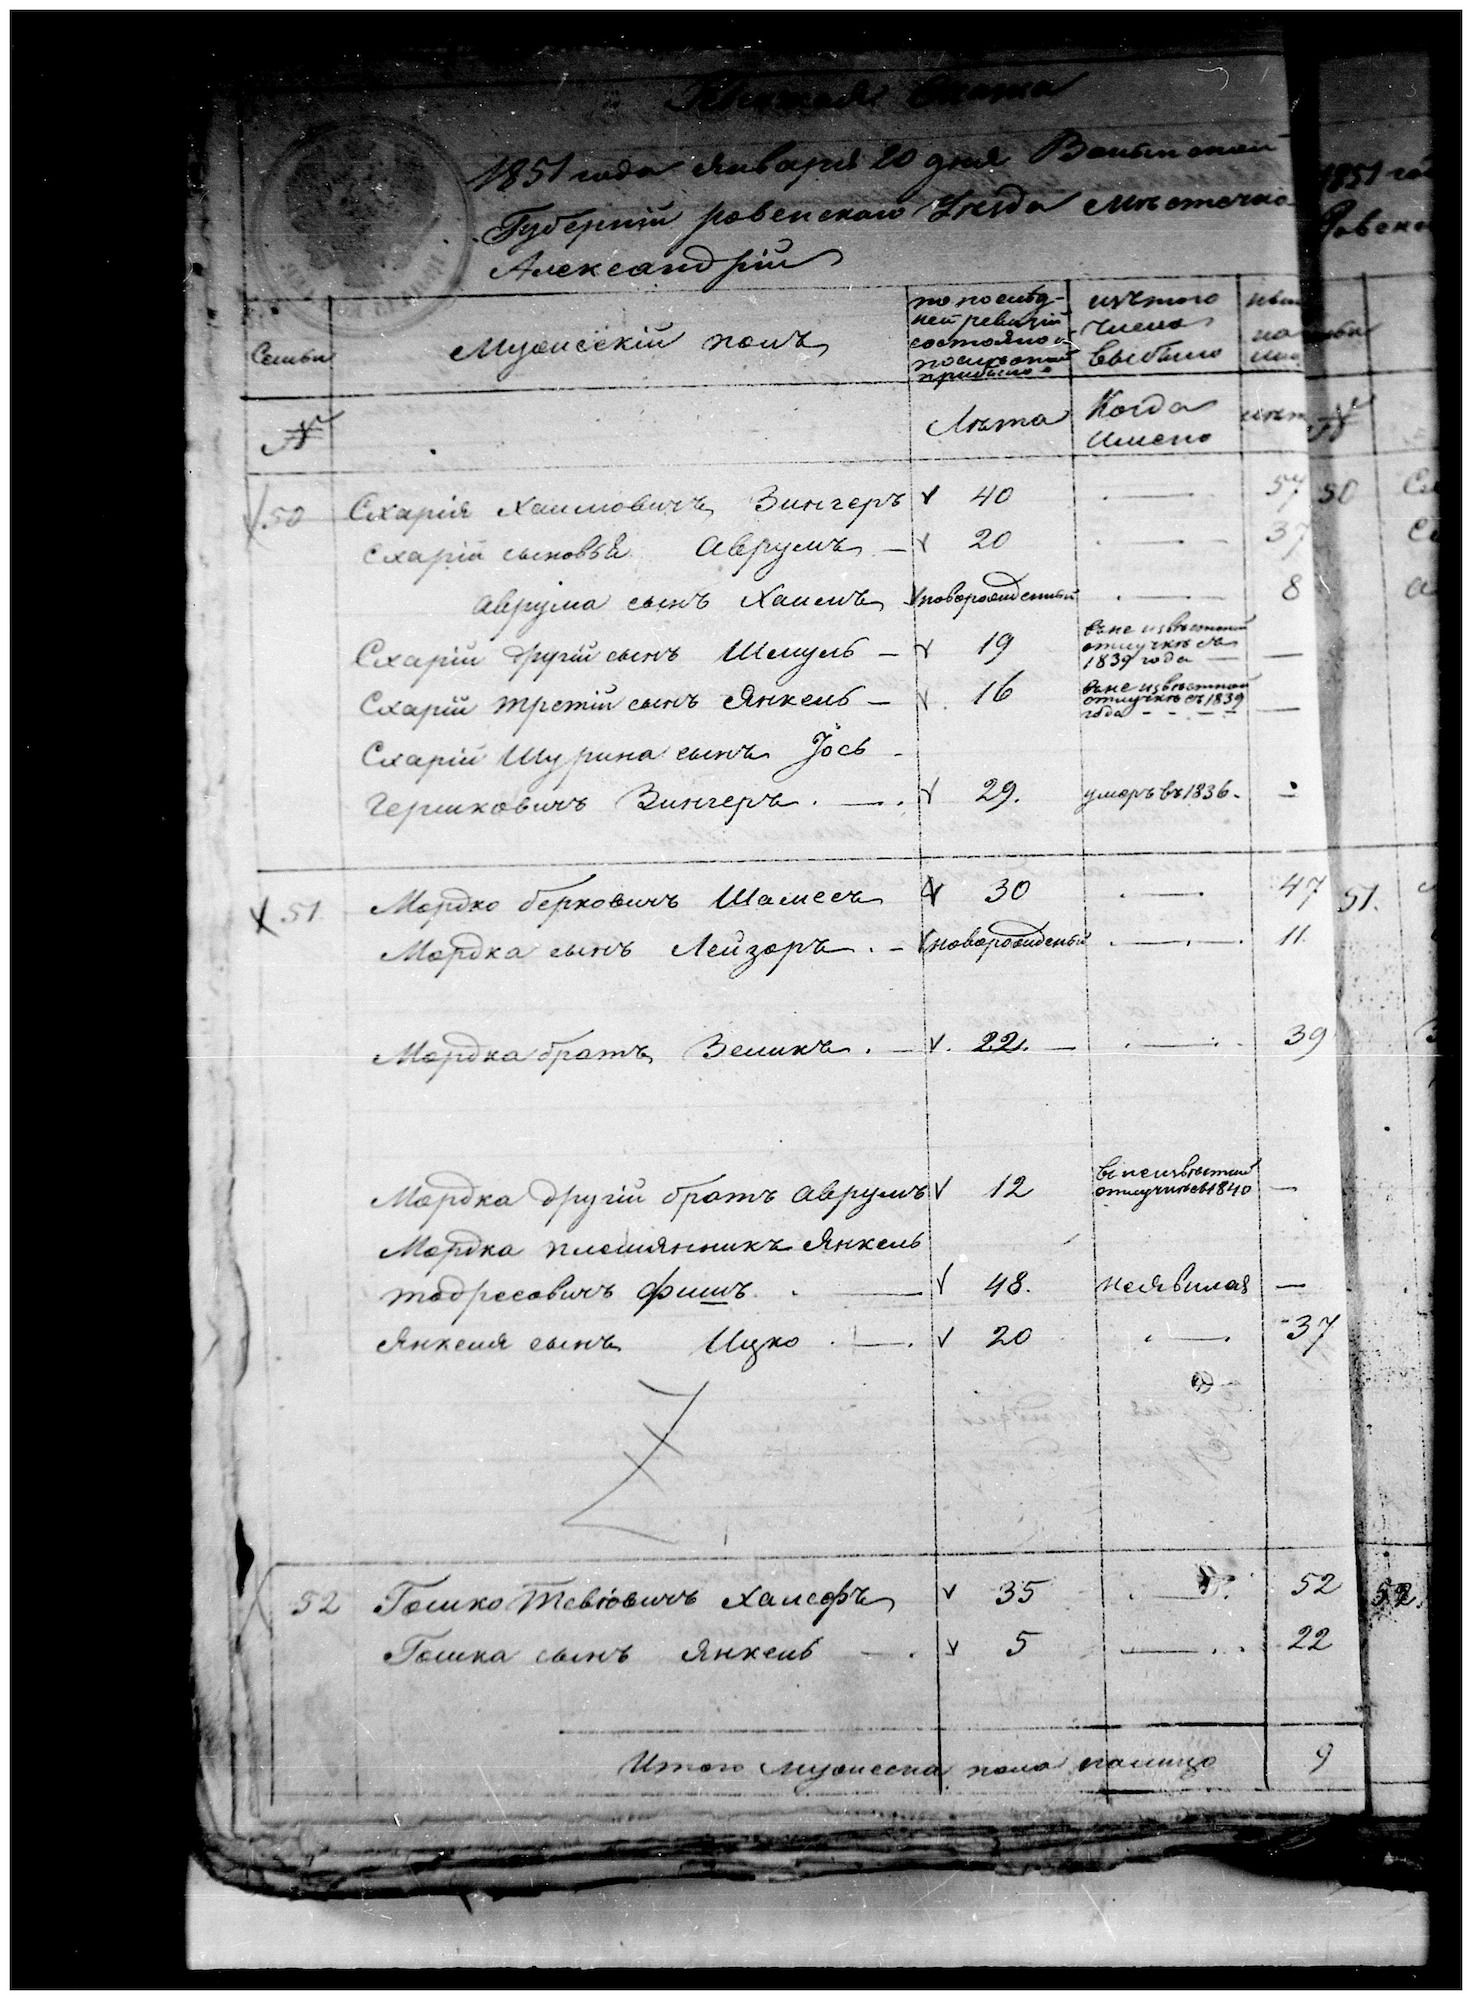 сказка
1851 года Января 20 дня Волынской
Губерніи ровенскаго Уезда Мѣстечка
Александріи
Семьи
Мужескій полъ
по послѣд-
ней ревизіи
состояло и
послѣ оной
прибыло
изъ того
числа
выбыло
№
Лѣта
Когда
имено
50 Схарія Хаимовичъ Зингеръ 40 57
Схарій сыновья Аврумъ 20 37
Аврума сынъ Хаимъ новорожденный 8
Схарій другій сынъ Шмуль 19 въ не извѣстной отлучкѣ съ 1839 года
Схарій третій сынъ Янкель 16 въ не извѣстной отлучкѣ съ 1839 года
Схарій Шурина сынъ Іось
Гершковичъ Зингеръ 29. умеръ въ 1836.
51 Мордко Берковичъ Шамесъ 30 47
Мордка сынъ Лейзоръ новорожденый 11.
Мордка братъ Зеликъ 22. 39
Мордка другій братъ Аврумъ 12 въ неизвѣстной отлучкѣ съ 1840
Мордка племянникъ Янкель
тодресовичъ Фишъ 48. неявился
Янкеля сынъ Ицко 20 37
52 Гошко Тевіовичъ Халефъ 35 52
Гошка сынъ Янкель 5 22
Итого мужеска пола налицо 9
1851
50
51.
52.